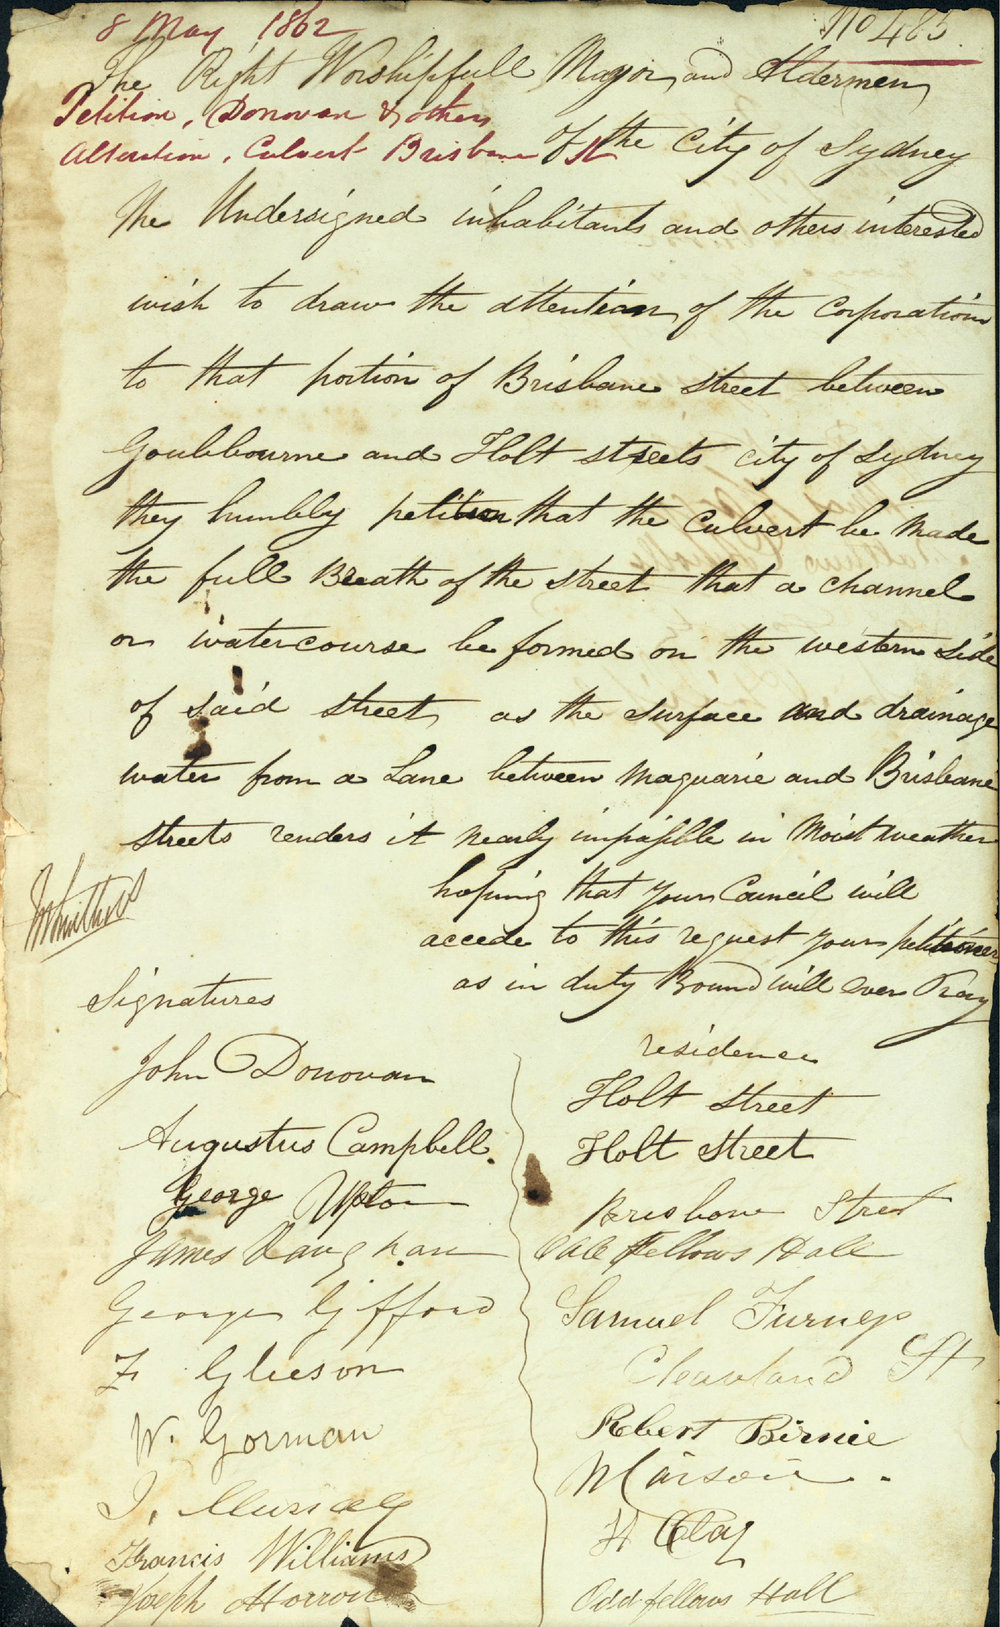 8 May 1862
No 485
The Right Worshipfull Mayor and Aldermen
Petition, Donovan & others
of the City of Sydney
Alteration, Culvert Brisbane St
The Undersigned inhabitants and others interested
wish to draw the attention of the Corporation
to that portion of Brisbane street between
Goulbourne and Holt streets city of Sydney
they humbly petition that the Culvert be made
the full Breath of the street that a channel
or watercourse be formed on the western side
of said street as the surface and drainage
water from a Lane between Maquarie and Brisbane
streets renders it nearly impassible in Moist weather
hoping that your Council will
accede to this request your petitioners
as in duty Bound will ever Pray
Signatures
residence
John Donovan
Holt street
Augustus Campbell.
Holt street
George Upton
Brisbane Street
James
fellows Hall
George Gifford
Samuel Furness
F Gleeson
Cleaveland St
W. Gorman
Robert Birnie
J.
H Clay
Francis Williams
Joseph
Oddfellows Hall